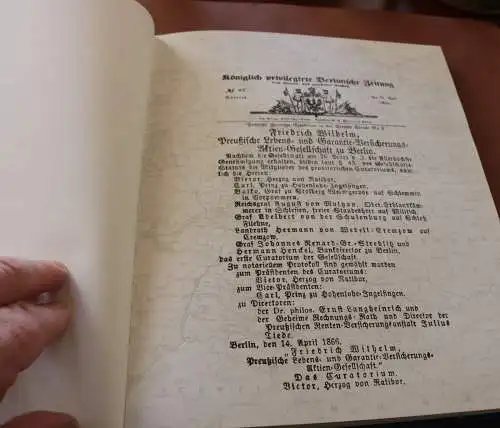 Königlich privilegirte Berlinische Zeitung
№ 87.
Friedrich Wilhelm,
Preußische Lebens- und Garantie-Versicherungs-
Aktien-Gesellschaft zu Berlin.
Nachdem die Gesellschaft am 26. März d. J. die Allerhöchste
Genehmigung erhalten, bilden laut § 45. des Gesellschafts-
Statuts die Mitglieder des provisorischen Curatoriums, näm-
lich die Herren:
Victor, Herzog von Ratibor,
Carl, Prinz zu Hohenlohe-Ingelfingen,
Botho, Graf zu Stolberg-Wernigerode auf Schlemmin
in Vorpommern,
Reichsgraf August von Maltzan, Ober-Erbkäm-
merer in Schlesien, freier Standesherr auf Militsch,
Graf Adelbert von der Schulenburg auf Schloß
Filehne,
Landrath Hermann von Wedell-Cremzow auf
Cremzow,
Graf Johannes Renard-Gr.-Strehlitz und
Hermann Henckel, Bankdirector zu Berlin,
das erste Curatorium der Gesellschaft.
Zu notariellem Protokoll sind gewählt worden
zum Präsidenten des Curatoriums:
Victor, Herzog von Ratibor,
zum Vice-Präsidenten:
Carl, Prinz zu Hohenlohe-Ingelfingen,
zu Directoren:
der Dr. philos. Ernst Langheinrich und
der Geheime Rechnungs-Rath und Director der
Preußischen Renten-Versicherungsanstalt Julius
Tiede.
Berlin, den 14. April 1866.
„Friedrich Wilhelm,
Preußische Lebens- und Garantie-Versicherungs-
Aktien-Gesellschaft."
Das Curatorium.
Victor, Herzog von Ratibor.